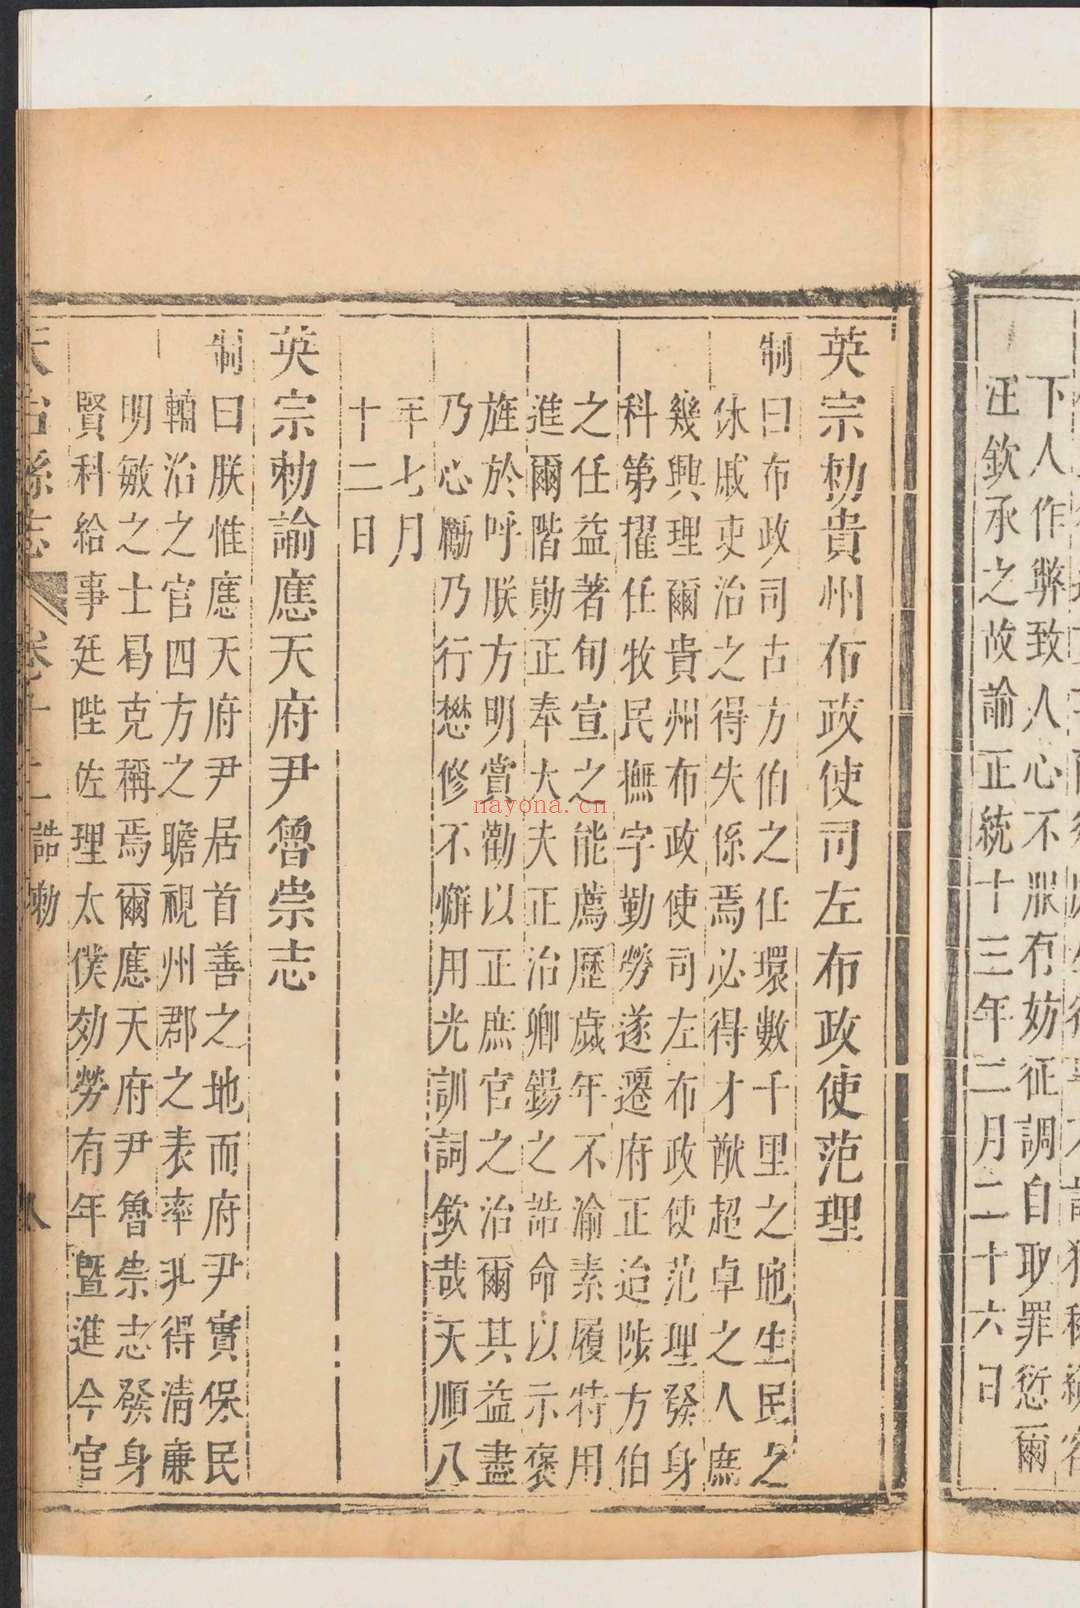 下人作弊致人人心不服有妨征調自取罪愆爾
汪欽承之故諭正統十三年二月二十六日
英宗勅貴州布政使司左布政使范理
制曰布政司古方伯之任環數千里之地生民之
休戚吏治之得失係焉必得才猷超卓之人庶
幾興理爾貴州布政使司左布政使范理發身
科第擢任牧民撫字勤勞遂遷府正迨陟方伯
之任益著旬宣之能薦歷歲年不渝素履特用
進爾階勛正奉大夫正治卿錫之誥命以示褒
旌於呼朕方明賞勸以正庶官之治爾其益盡
乃心勵乃行懋修不懈用光訓詞欽哉天順八
年七月
十二日
英宗勅諭應天府尹魯崇志
制曰朕惟應天府尹居首善之地而府尹實保民
輔治之官四方之瞻視州郡之表率非得清廉
明敏之士曷克稱焉爾應天府尹魯崇志發身
賢科給事廷陛佐理太僕効勞有年曁進今官
天台縣志 卷十二 誥勅 八
nayona.cn